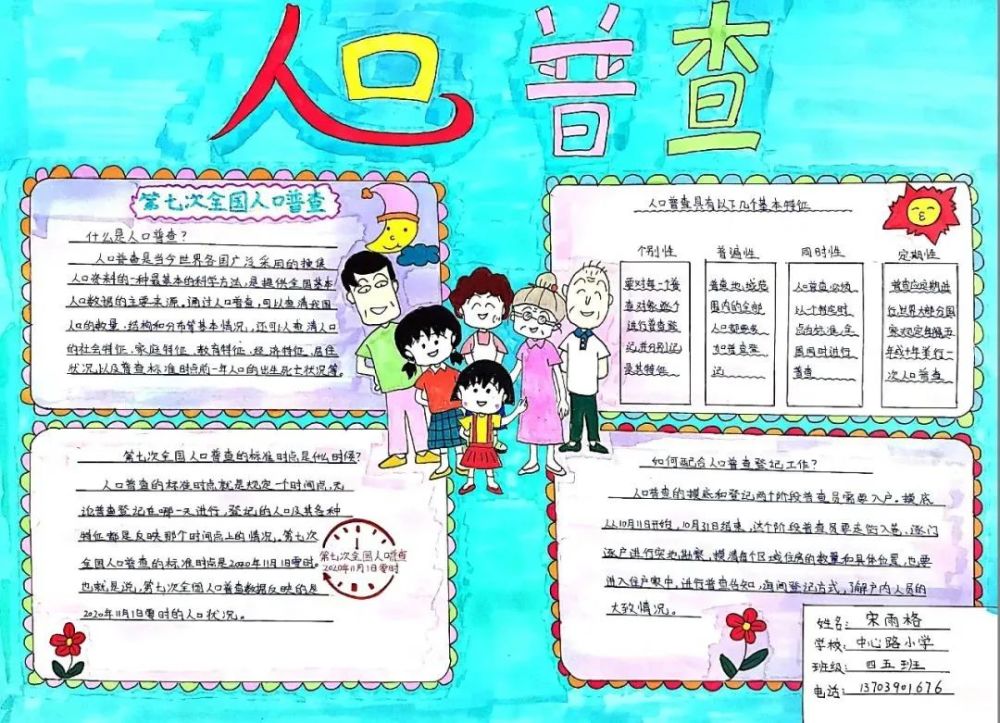 人口普查
第七次全国人口普查
什么是人口普查？
人口普查是当今世界各国广泛采用的搜集
人口资料的一种最基本的科学方法，是提供全国基本
人口数据的主要来源。通过人口普查，可以查清我国
人口的数量、结构和分布等基本情况，还可以查清人口
的社会特征、家庭特征、教育特征、经济特征、居住
状况以及普查标准时点前一年人口的出生死亡状况等。
人口普查具有以下几个基本特征
个别性
要对每一个普
查对象逐个
进行普查登
记并分别记
录其特征
普遍性
普查地域范
围内的全部
人口都要参
加普查登
记
同时性
人口普查必须
以一个特定时
点为标准，全
国同时进行
普查
定期性
普查应定期进
行，世界大部分国
家规定每隔五
年或十年举行一
次人口普查
第七次全国人口普查的标准时点是什么时候？
人口普查的标准时点就是规定一个时间点，无
论普查登记在哪一天进行，登记的人口及其各种
特征都是反映那个时间点上的情况。第七次
全国人口普查的标准时点是2020年11月1日零时。
也就是说，第七次全国人口普查数据反映的是
2020年11月1日零时的人口状况。
第七次全国人口普查
2020年11月1日零时
如何配合人口普查登记工作？
人口普查的摸底和登记两个阶段普查员需要入户。摸底
从10月11日开始，10月31日结束，这个阶段普查员要走街入巷、逐门
逐户进行实地勘察，摸清每个区域住房的数量和具体位置，也要
进入住户家中，进行普查告知，询问登记方式，了解户内人员的
大致情况。
姓名：宋雨格
学校：中心路小学
班级：四五班
电话：13703901676